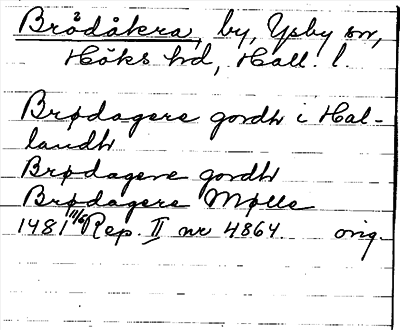 Brödåkra, by, Ysby sn,
Höks hd, Hall. l.
Brødagere gordh i Hal-
landh
Brødagere gordh
Brødagere Mølle
1481 11/6 Rep. II nr 4864. orig.